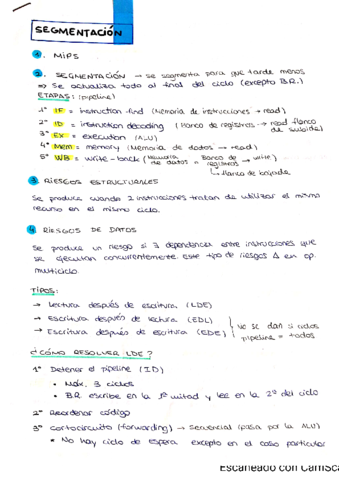 SEGMENTACIÓN
1. MIPS
2. SEGMENTACIÓN → se segmenta para que tarde menos
⇒ Se actualiza todo al final del ciclo (excepto B.R.)
ETAPAS: (pipeline)
1º IF = instruction-find (Memoria de instrucciones → read)
2º ID = instruction decoding (Banco de registros → read flanco de subida)
3º EX = execution (ALU)
4º Mem = memory (Memoria de datos → read)
5º WB = write-back (Memoria de datos = Banco de registros → write)
↳ flanco de bajada
3. RIESGOS ESTRUCTURALES
Se produce cuando 2 instrucciones tratan de utilizar el mismo
recurso en el mismo ciclo.
4. RIESGOS DE DATOS
Se produce un riesgo si ∃ dependencias entre instrucciones que
se ejecutan concurrentemente. Este tipo de riesgos Δ en op.
multiciclo.
TIPOS:
→ Lectura después de escritura (LDE)
→ Escritura después de lectura (EDL)
→ Escritura después de escritura (EDE)
no se dan si ciclos
pipeline = todos
¿CÓMO RESOLVER LDE?
1º Detener el pipeline (ID)
• Máx. 3 ciclos
• B.R escribe en la 1ª mitad y lee en la 2ª del ciclo
2º Reordenar código
3º Cortocircuito (forwarding) → secuencial (pasa por la ALU)
• No hay ciclo de espera excepto en el caso particular
Escaneado con CamSc